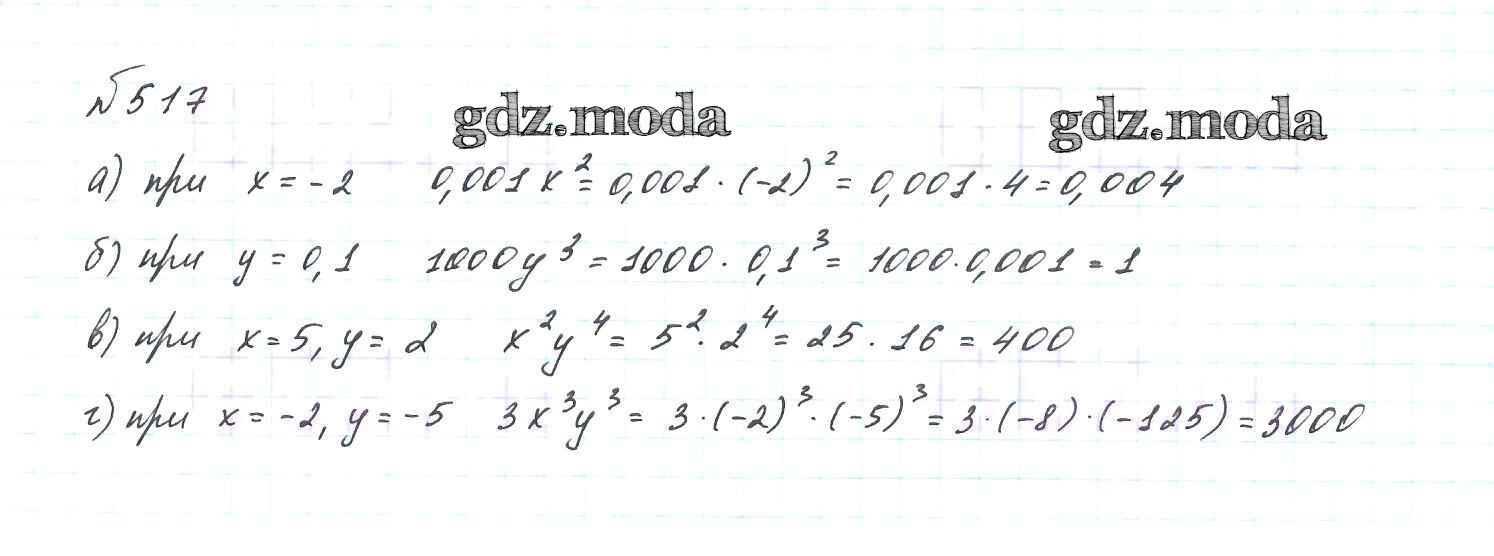 №517
gdz.moda gdz.moda
а) при x = -2 0,001x² = 0,001 · (-2)² = 0,001 · 4 = 0,004
б) при y = 0,1 1000y³ = 1000 · 0,1³ = 1000 · 0,001 = 1
в) при x = 5, y = 2 x²y⁴ = 5² · 2⁴ = 25 · 16 = 400
г) при x = -2, y = -5 3x³y³ = 3 · (-2)³ · (-5)³ = 3 · (-8) · (-125) = 3000